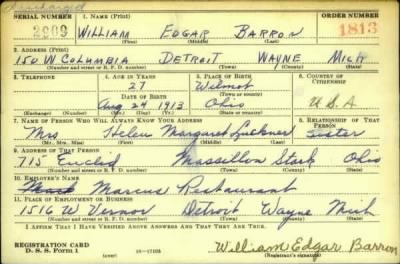 Discharged
SERIAL NUMBER 1. NAME (Print) ORDER NUMBER
2909 WILLIAM EDGAR BARRON 1813
(First) (Middle) (Last)
2. ADDRESS (Print)
150 W COLUMBIA DETROIT WAYNE MICH
(Number and street or R. F. D. number) (Town) (County) (State)
3. TELEPHONE 4. AGE IN YEARS 5. PLACE OF BIRTH 6. COUNTRY OF CITIZENSHIP
27 Wilmot
DATE OF BIRTH (Town or county)
Aug 24 1913 Ohio U S A
(Exchange) (Number) (Mo.) (Day) (Yr.) (State or country)
7. NAME OF PERSON WHO WILL ALWAYS KNOW YOUR ADDRESS 8. RELATIONSHIP OF THAT PERSON
Mrs Helen Margaret Luckner Sister
(Mr., Mrs., Miss) (First) (Middle) (Last)
9. ADDRESS OF THAT PERSON
715 Euclid Massillon Stark Ohio
(Number and street or R. F. D. number) (Town) (County) (State)
10. EMPLOYER'S NAME
Marcus Restaurant
11. PLACE OF EMPLOYMENT OR BUSINESS
1516 W Vernor Detroit Wayne Mich
(Number and street or R. F. D. number) (Town) (County) (State)
I AFFIRM THAT I HAVE VERIFIED ABOVE ANSWERS AND THAT THEY ARE TRUE.
REGISTRATION CARD William Edgar Barron
D. S. S. Form 1 (over) (Registrant's signature)